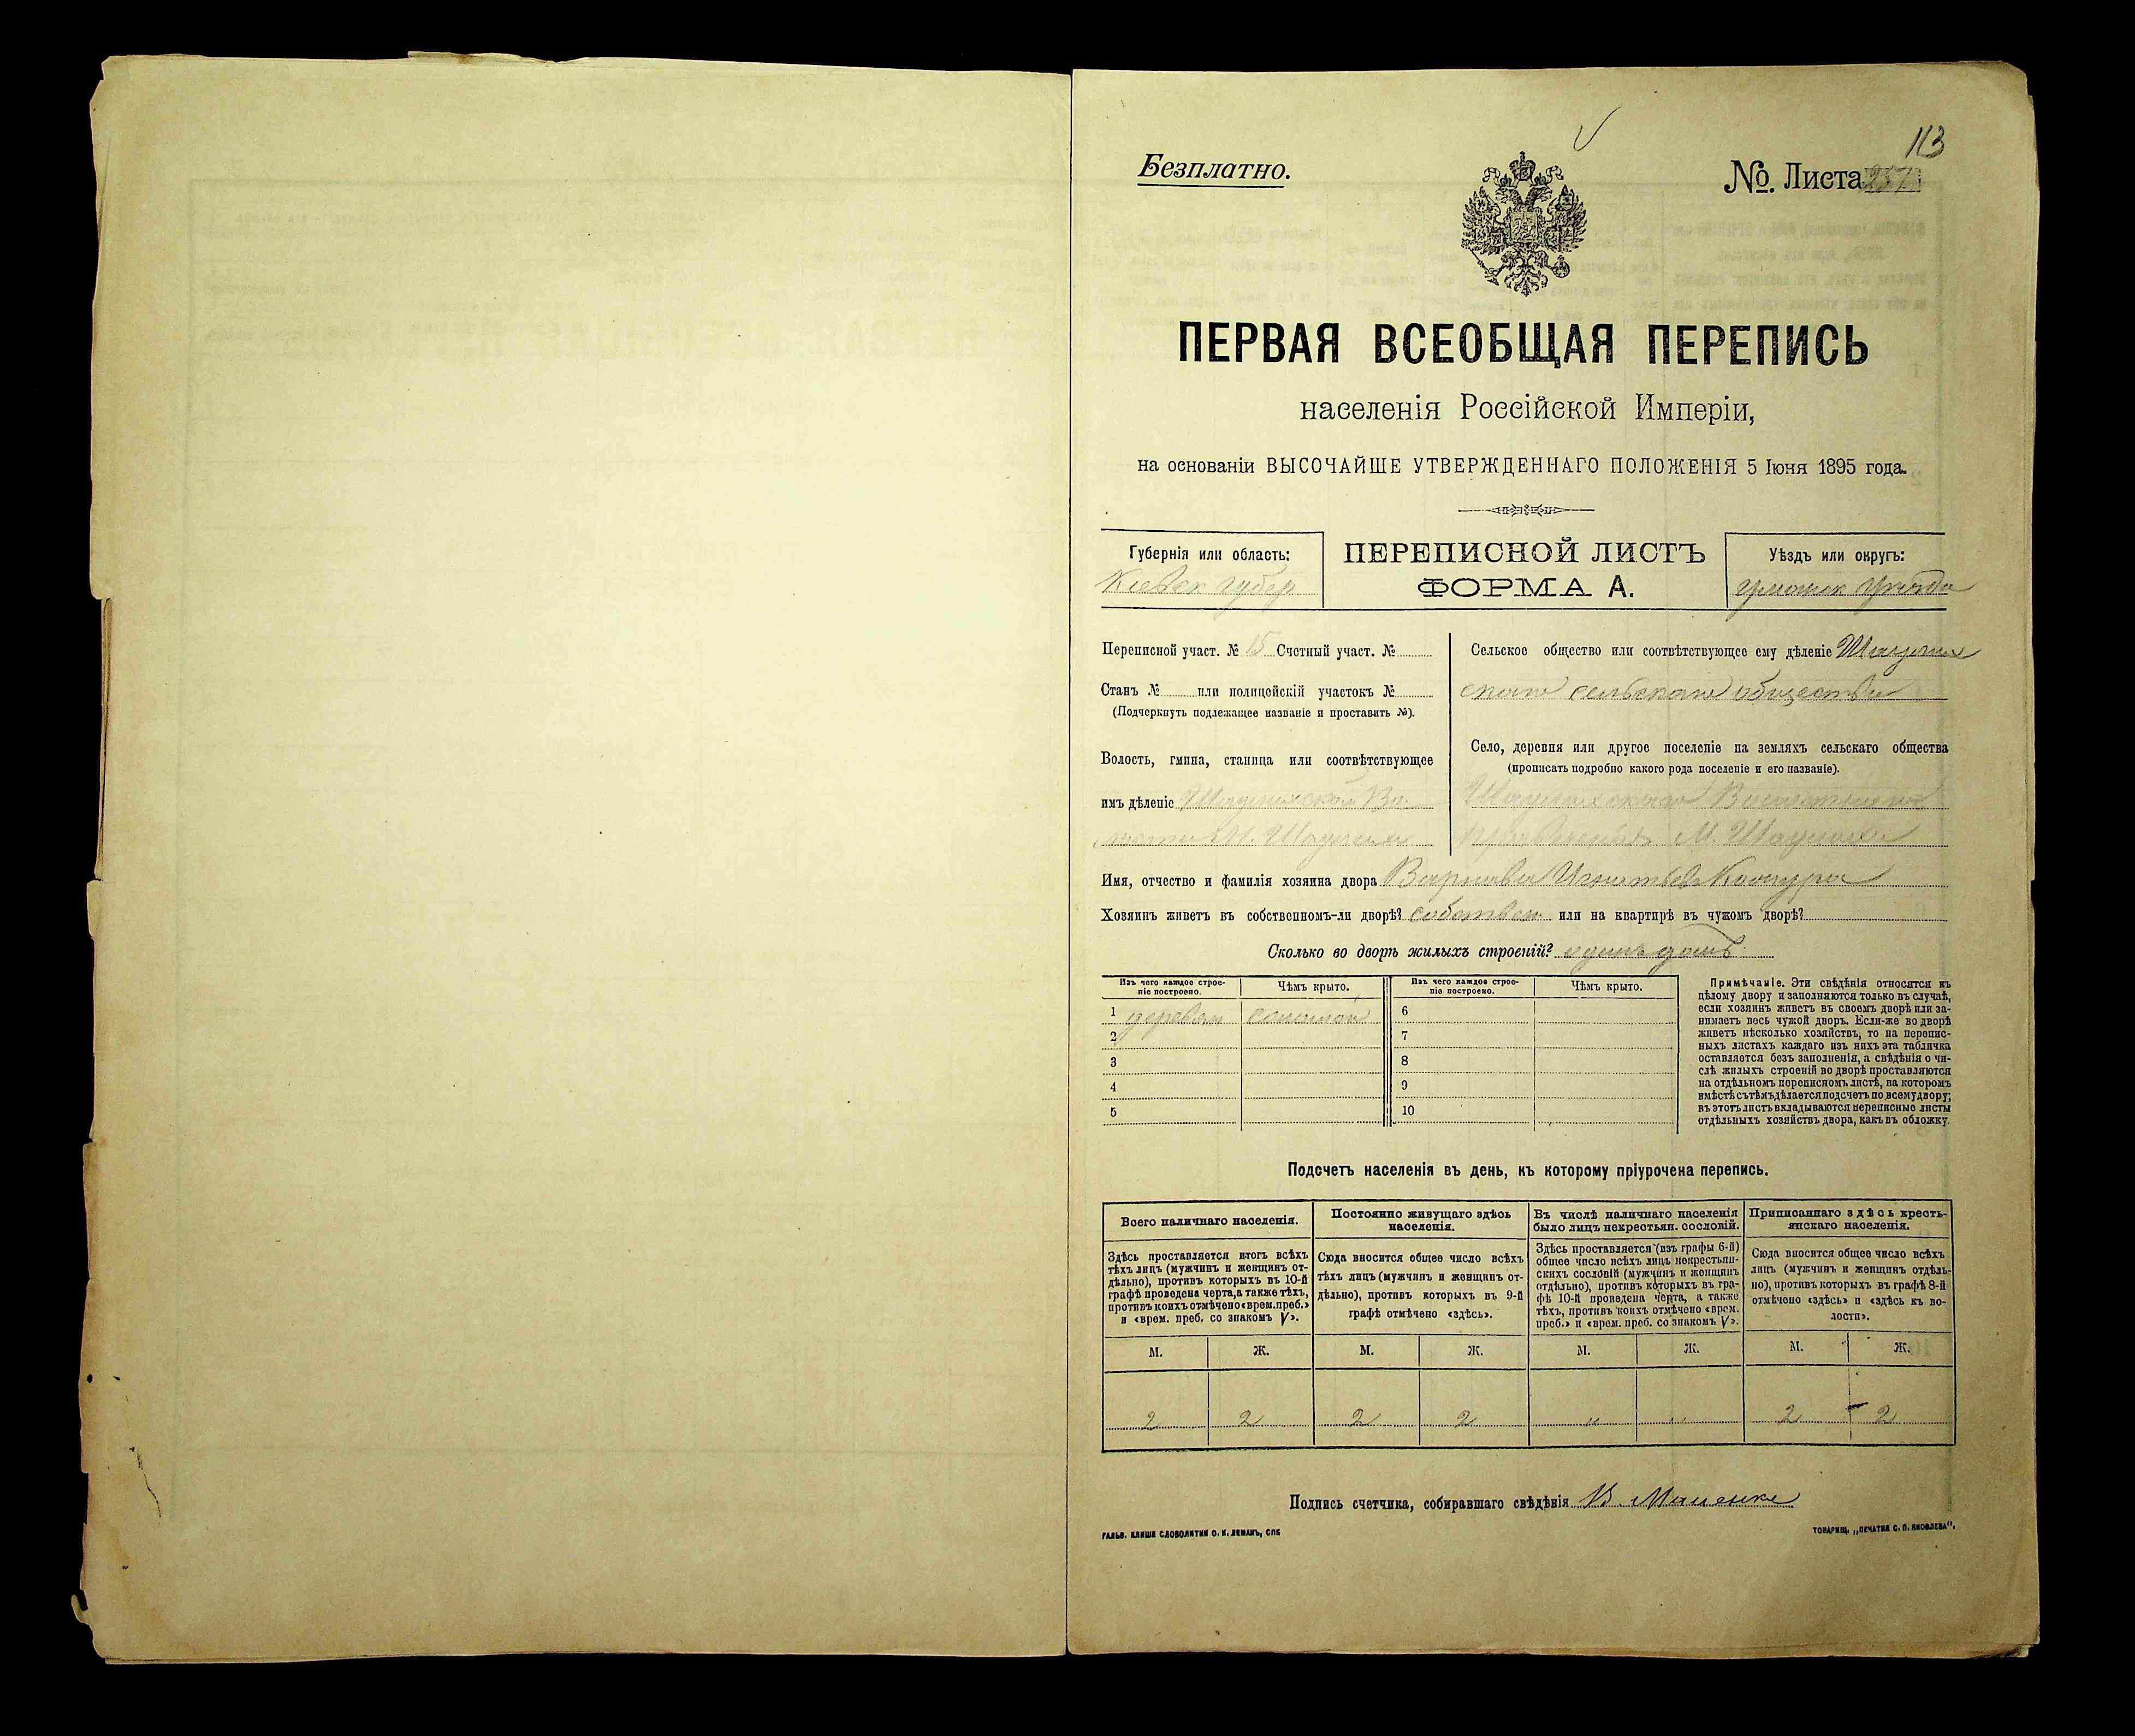 113
Безплатно.
№. Листа 257
ПЕРВАЯ ВСЕОБЩАЯ ПЕРЕПИСЬ
населенія Россійской Имперіи,
на основаніи ВЫСОЧАЙШЕ УТВЕРЖДЕННАГО ПОЛОЖЕНІЯ 5 Іюня 1895 года.
Губернія или область:
Кіевск губер
ПЕРЕПИСНОЙ ЛИСТЪ
ФОРМА А.
Уѣздъ или округъ:
Уманск Уѣзда
Переписной участ. № 15 Счетный участ. №
Станъ № или полицейскій участокъ №
(Подчеркнуть подлежащее названіе и проставить №).
Волость, гмина, станица или соотвѣтствующее
имъ дѣленіе
Сельское общество или соотвѣтствующее ему дѣленіе
скаго сельскаго общества
Село, деревня или другое поселеніе на земляхъ сельскаго общества
(прописать подробно какого рода поселеніе и его названіе).
Имя, отчество и фамилія хозяина двора Варнава Игнатьев
Хозяинъ живетъ въ собственномъ-ли дворѣ? собствен. или на квартирѣ въ чужомъ дворѣ?
Сколько во дворѣ жилыхъ строеній? один домъ
Изъ чего каждое строе-
ніе построено.
Чѣмъ крыто.
Изъ чего каждое строе-
ніе построено.
Чѣмъ крыто.
1 деревян соломой
2
3
4
5
6
7
8
9
10
Примѣчаніе. Эти свѣдѣнія относятся къ
цѣлому двору и заполняются только въ случаѣ,
если хозяинъ живетъ въ своемъ дворѣ или за-
нимаетъ весь чужой дворъ. Если-же во дворѣ
живетъ нѣсколько хозяйствъ, то на перепис-
ныхъ листахъ каждаго изъ нихъ эта табличка
оставляется безъ заполненія, а свѣдѣнія о чи-
слѣ жилыхъ строеній во дворѣ проставляются
на отдѣльномъ переписномъ листѣ, на которомъ
вмѣстѣ съ тѣмъ дѣлается подсчетъ по всему двору;
въ этотъ листъ вкладываются переписные листы
отдѣльныхъ хозяйствъ двора, какъ въ обложку.
Подсчетъ населенія въ день, къ которому пріурочена перепись.
Всего наличнаго населенія.
Здѣсь проставляется итогъ всѣхъ
тѣхъ лицъ (мужчинъ и женщинъ от-
дѣльно), противъ которыхъ въ 10-й
графѣ проведена черта, а также тѣхъ,
противъ коихъ отмѣчено «врем. преб.»
и «врем. преб. со знакомъ V».
Постоянно живущаго здѣсь
населенія.
Сюда вносится общее число всѣхъ
тѣхъ лицъ (мужчинъ и женщинъ от-
дѣльно), противъ которыхъ въ 9-й
графѣ отмѣчено «здѣсь».
Въ числѣ наличнаго населенія
было лицъ некрестьян. сословій.
Здѣсь проставляется (изъ графы 6-й)
общее число всѣхъ лицъ некрестьян-
скихъ сословій (мужчинъ и женщинъ
отдѣльно), противъ которыхъ въ гра-
фѣ 10-й проведена черта, а также
тѣхъ, противъ коихъ отмѣчено «врем.
преб.» и «врем. преб. со знакомъ V».
Приписаннаго здѣсь кресть-
янскаго населенія.
Сюда вносится общее число всѣхъ
лицъ (мужчинъ и женщинъ отдѣль-
но), противъ которыхъ въ графѣ 8-й
отмѣчено «здѣсь» и «здѣсь къ во-
лости».
М. Ж. М. Ж. М. Ж. М. Ж.
2 2 2 2 " " 2 2
Подпись счетчика, собиравшаго свѣдѣнія
ГАЛЬВ. КЛИШЕ СЛОВОЛИТНИ О. И. ЛЕМАНЪ, СПБ
ТОВАРИЩ. „ПЕЧАТНЯ С. П. ЯКОВЛЕВА“.